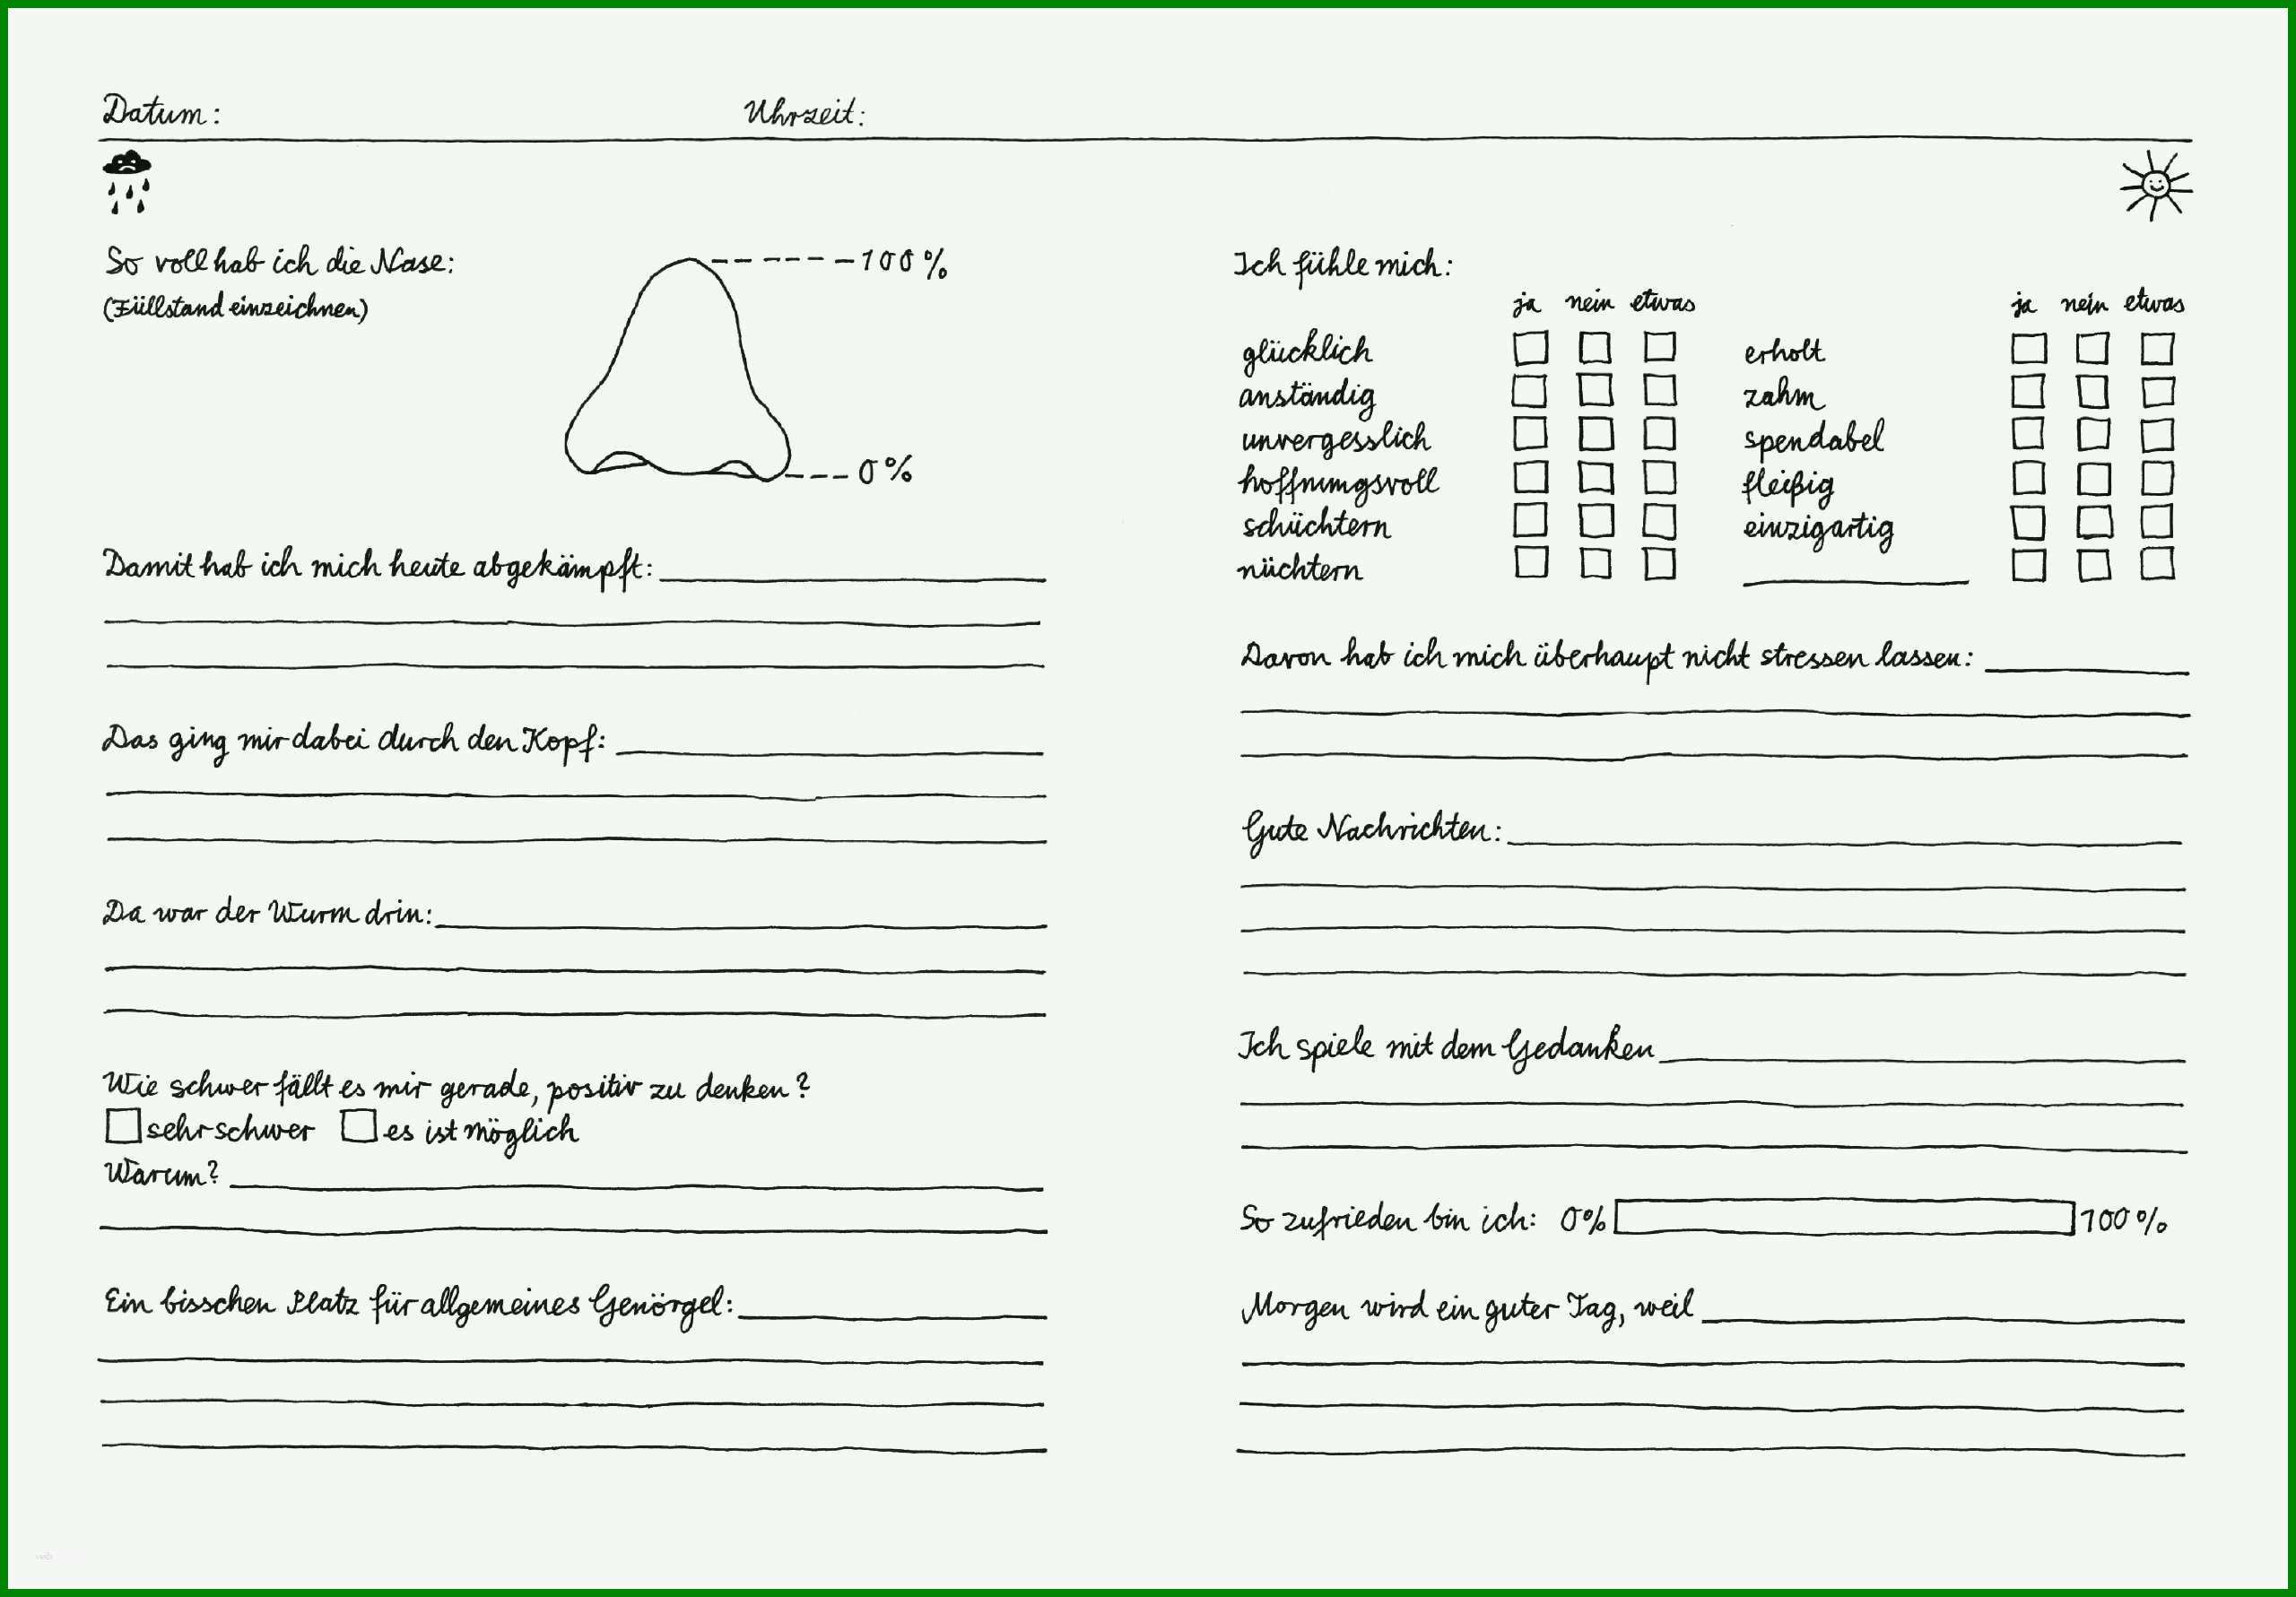 Datum: Uhrzeit:
So voll hab ich die Nase:
(Füllstand einzeichnen)
100%
0%
Damit hab ich mich heute abgekämpft:
Das ging mir dabei durch den Kopf:
Da war der Wurm drin:
Wie schwer fällt es mir gerade, positiv zu denken?
sehr schwer es ist möglich
Warum?
Ein bisschen Platz für allgemeines Genörgel:
Ich fühle mich:
ja nein etwas ja nein etwas
glücklich erholt
anständig zahm
unvergesslich spendabel
hoffnungsvoll fleißig
schüchtern einzigartig
nüchtern
Davon hab ich mich überhaupt nicht stressen lassen:
Gute Nachrichten:
Ich spiele mit dem Gedanken
So zufrieden bin ich: 0% 100%
Morgen wird ein guter Tag, weil